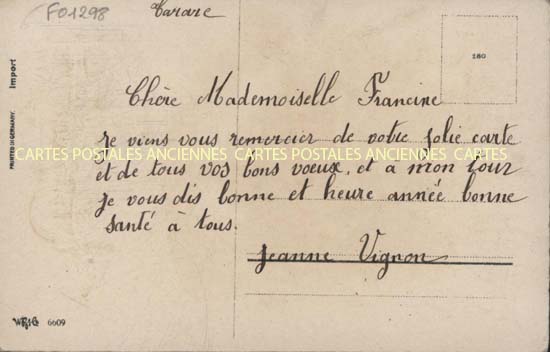 F01298
Tarare
180
Import
PRINTED IN GERMANY.
Chère Mademoiselle Francine
je viens vous remercier de votre jolie carte
CARTES POSTALES ANCIENNES CARTES POSTALES ANCIENNES CARTES
et de tous vos bons voeux, et a mon tour
je vous dis bonne et heure année bonne
santé à tous.
Jeanne Vignon
6609